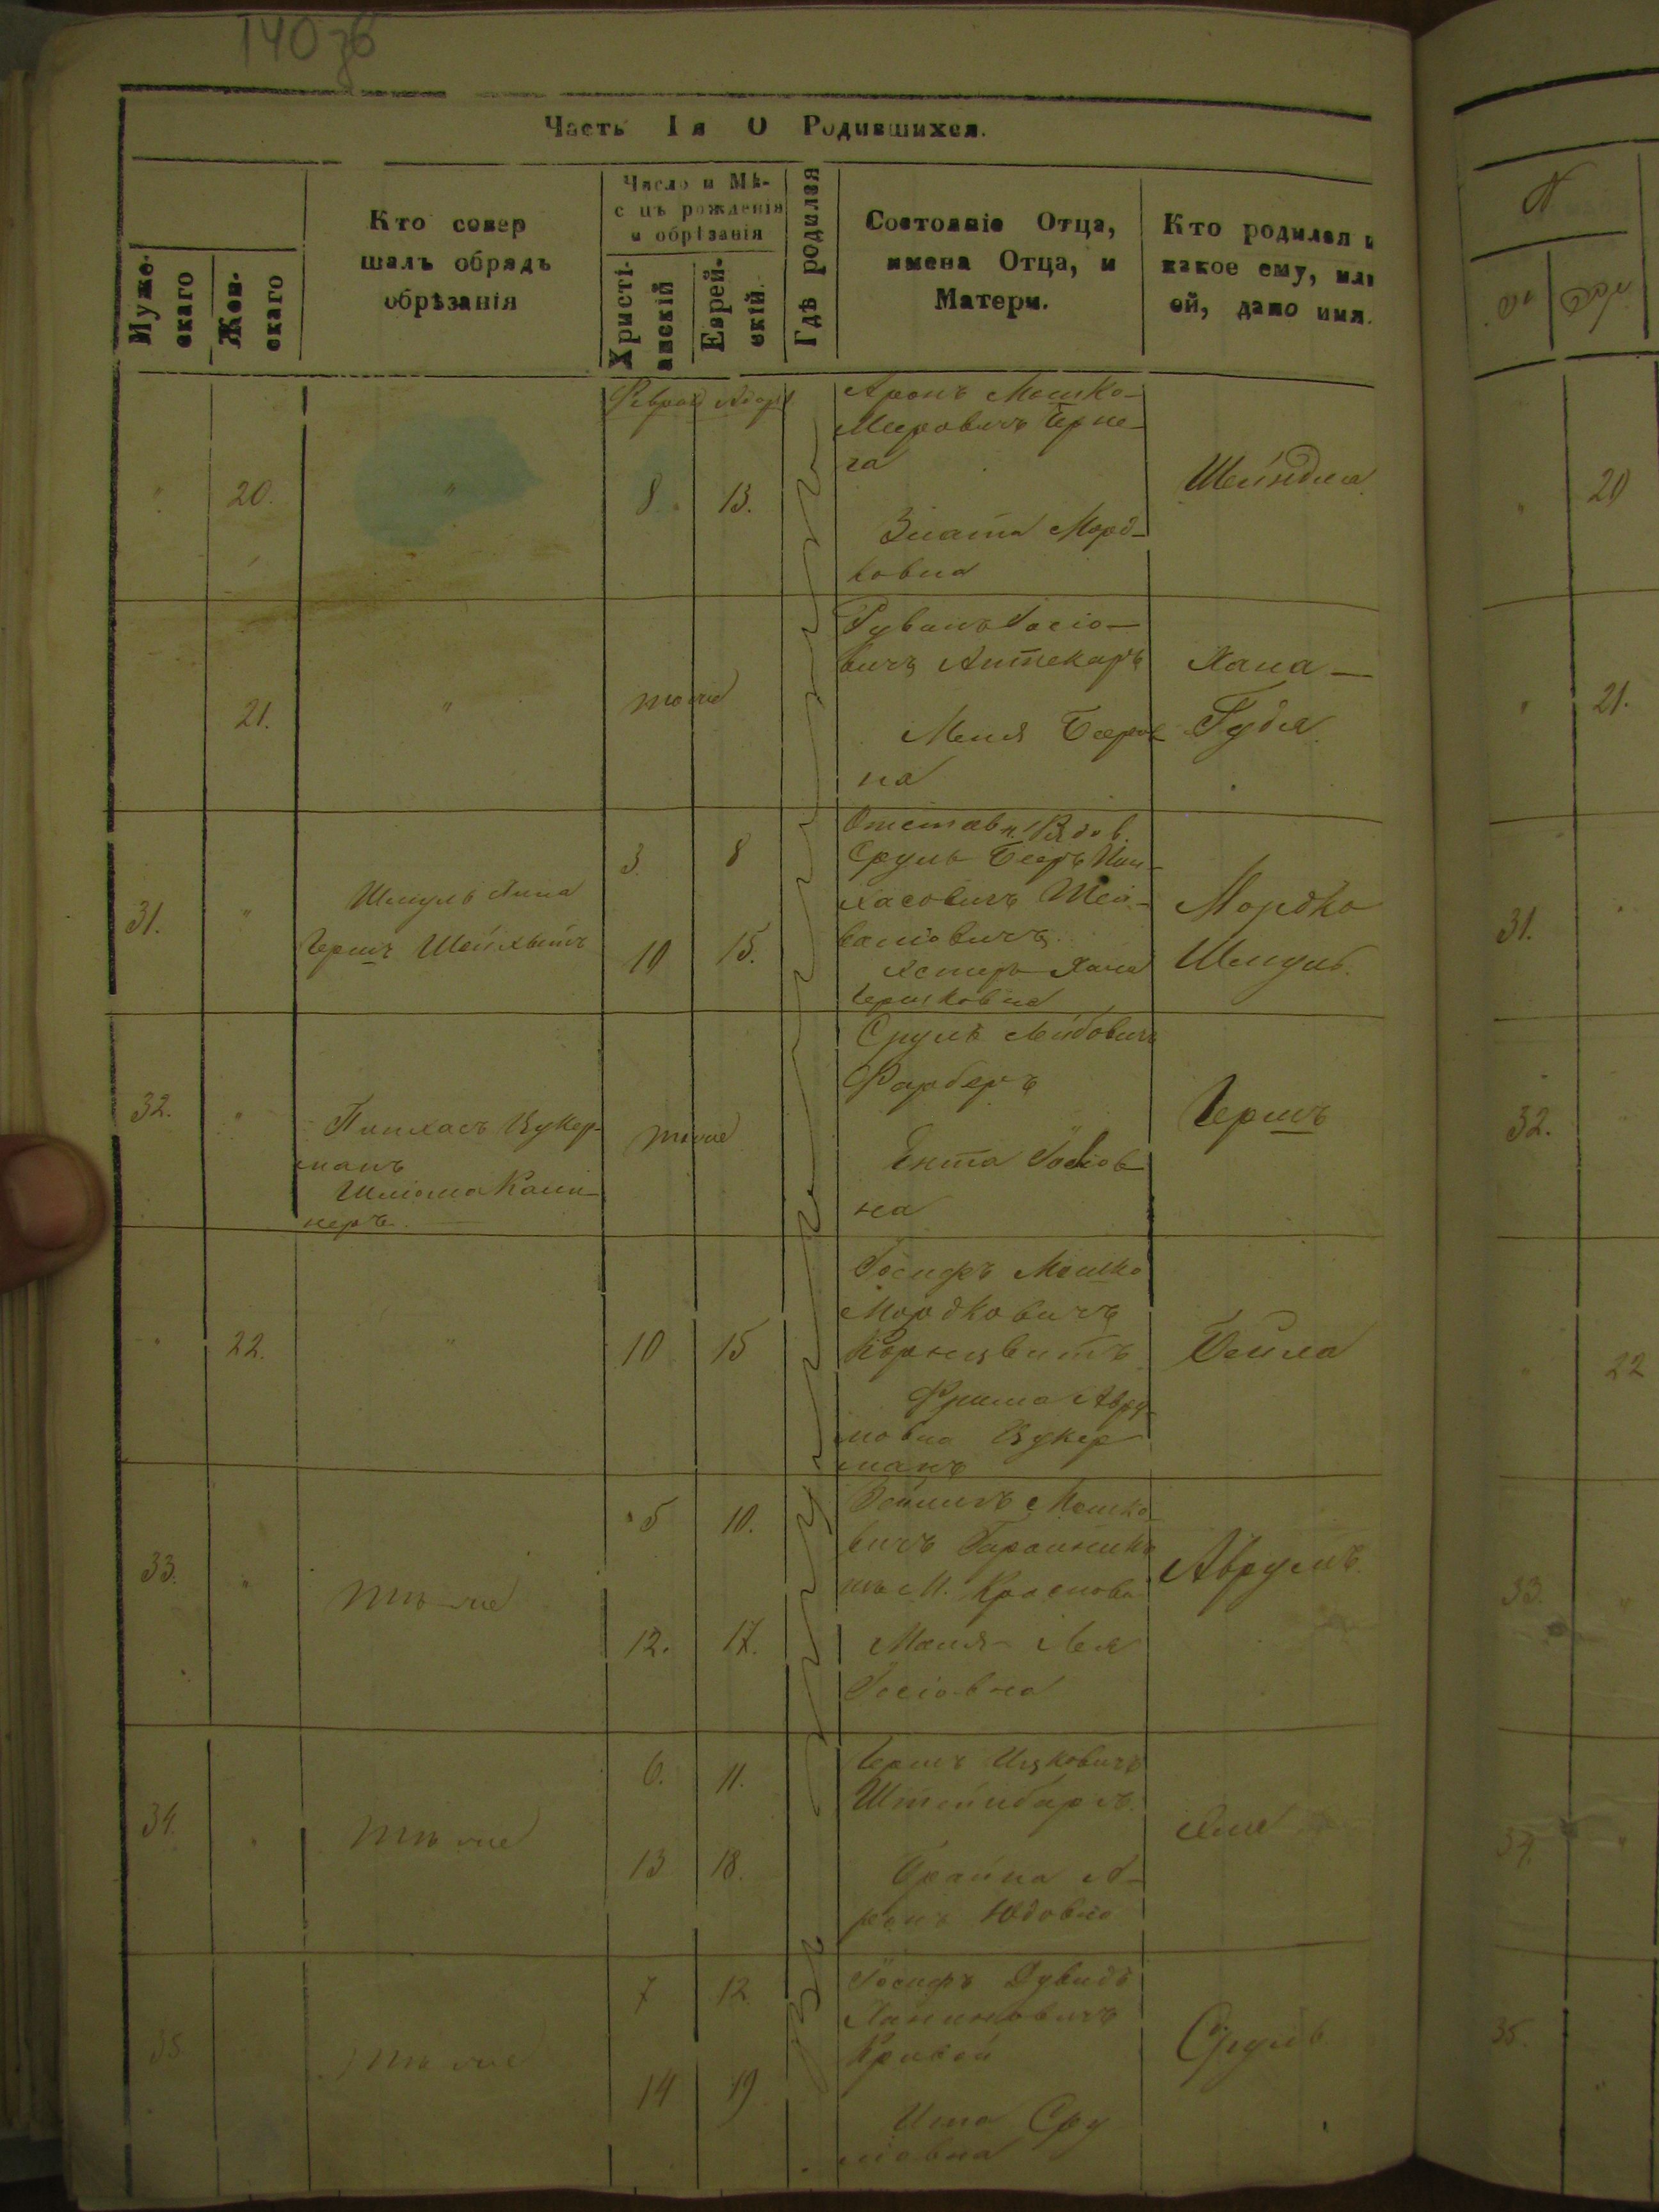 140 зв
Часть I я О Родившихся.
Мужескаго
Женскаго
Кто совер
шалъ обрядъ
обрѣзанія
Число и Мѣ-
с цъ рожденія
и обрѣзанія
Христі-
анскій
Еврей-
скій.
Гдѣ родился
Состояніе Отца,
имена Отца, и
Матери.
Кто родился и
какое ему, или
ей, дано имя.
" 20. " 8. 13.
Аронъ Мошко-
Мееровичъ Черне-
га
Злата Морд-
ковна
Шейндля
21. " тоже
Рувинъ Іосіо-
вичъ Аптекарь
Меня Беров
на
Хана-
Гудя
31. "
Шмуль
Гершъ
3. 8
10 15.
Отставн. Рядов.
Сруль Беръ Пин-
хасовичъ
Хана
Гершковна
Мордко
Шмуль
32. "
Пинхасъ Цукер-
манъ
Шліома
тоже
Сруль Лейбовичъ
Фарберъ
Ента Іосіов
на
Гершъ
" 22. " 10 15
Іосифъ Мошко
Мордковичъ
Корнцвитъ
Фрима Авру
мовна Цукер
манъ
Бейла
33. " тоже
5 10.
12. 17.
Мошко-
вичъ
Маня Лея
Іосіовна
Аврумъ.
34. " тоже
6. 11.
13 18.
Гершъ Ицковичъ
Штейнбаргъ.
Брайна А-
ронъ Юдовна
35 тоже
7 12
14 19
Іосифъ Дувидъ
Ханиновичъ
Кривой
Сру
ліовна
Сруль
20
21.
31.
32.
22
33.
34.
35.